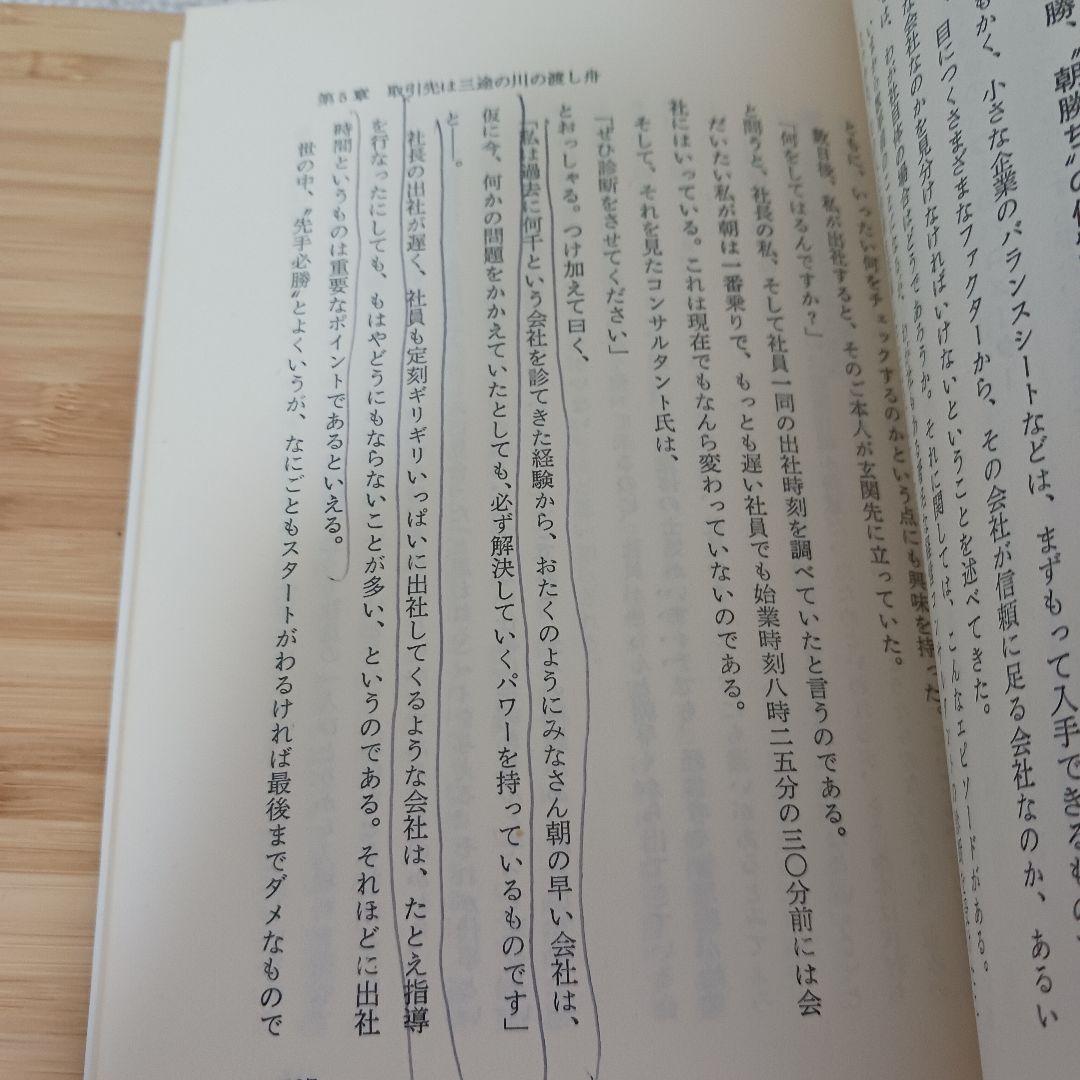 勝、〝朝勝ち〟の
もかく、小さな企業のバランスシートなどは、まずもって入手できるもの
、目につくさまざまなファクターから、その会社が信頼に足る会社なのか、あるい
な会社なのかを見分けなければいけないということを述べてきた。
それに関しては、こんなエピソードがある。
ともに、いったい何をチェックするのかという点にも興味を持った。
数日後、私が出社すると、そのご本人が玄関先に立っていた。
「何をしてはるんですか?」
と問うと、社長の私、そして社員一同の出社時刻を調べていたと言うのである。
だいたい私が朝は一番乗りで、もっとも遅い社員でも始業時刻八時二五分の三〇分前には会
社にはいっている。これは現在でもなんら変わっていないのである。
そして、それを見たコンサルタント氏は、
「ぜひ診断をさせてください」
とおっしゃる。つけ加えて曰く、
「私は過去に何千という会社を診てきた経験から、おたくのようにみなさん朝の早い会社は、
仮に今、何かの問題をかかえていたとしても、必ず解決していくパワーを持っているものです」
と――。
社長の出社が遅く、社員も定刻ギリギリいっぱいに出社してくるような会社は、たとえ指導
を行なったにしても、もはやどうにもならないことが多い、というのである。それほどに出社
時間というものは重要なポイントであるといえる。
世の中、〝先手必勝〟とよくいうが、なにごともスタートがわるければ最後までダメなもので
第5章 取引先は三途の川の渡し舟